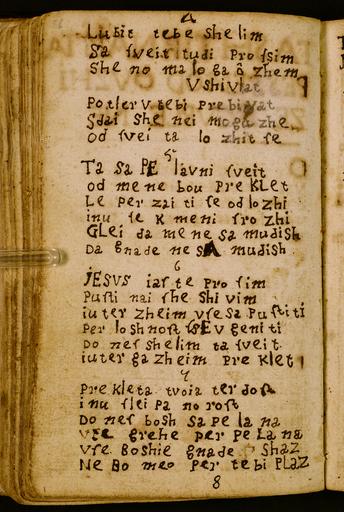 4
Lubit tebe shelim
Sa sveit tudi prossim
She no malo ga ô zhem
Vshivlat
Potler v tebi prebivat
Sdai she nei mogu zhe
Od svei ta lozhit se
5
Ta sa PE lavni sveit
od mene bou preklet
Le per zaiti se od lozhi
inu se k meni sro zhi
GLEi da mene sa mudish
Da gnade nesA mudish
6
JESVS ias te prosim
Pusti nai she shivim
iuter zheim vse sa pustiti
Per loshnost isEv geniti
Do nes shelim ta sveit
iuter ga zheim preklet
7
Prekleta tvoia terdost
inu slei pa norost
Do nes bosh sa pelana
vse grehe per pelana
vse Boshie gnade shaz
Ne Bo meo per tebi plaz
8